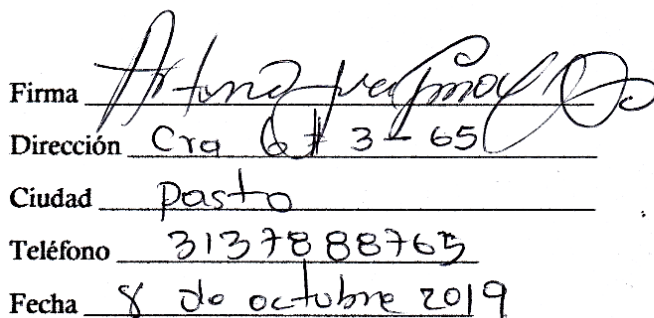 Firma
Dirección Cra 6 # 3 - 65
Ciudad Pasto
Teléfono 3137888765
Fecha 8 de octubre 2019